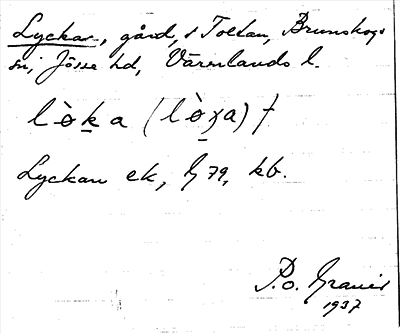 Lyckan, gård, i Tolean, Brunskogs
sn, Jösse hd, Värmlands l.
lò̱ka (lò̱χa) f
Lyckan ek, G 79, kb.
P.o. Granér
1937